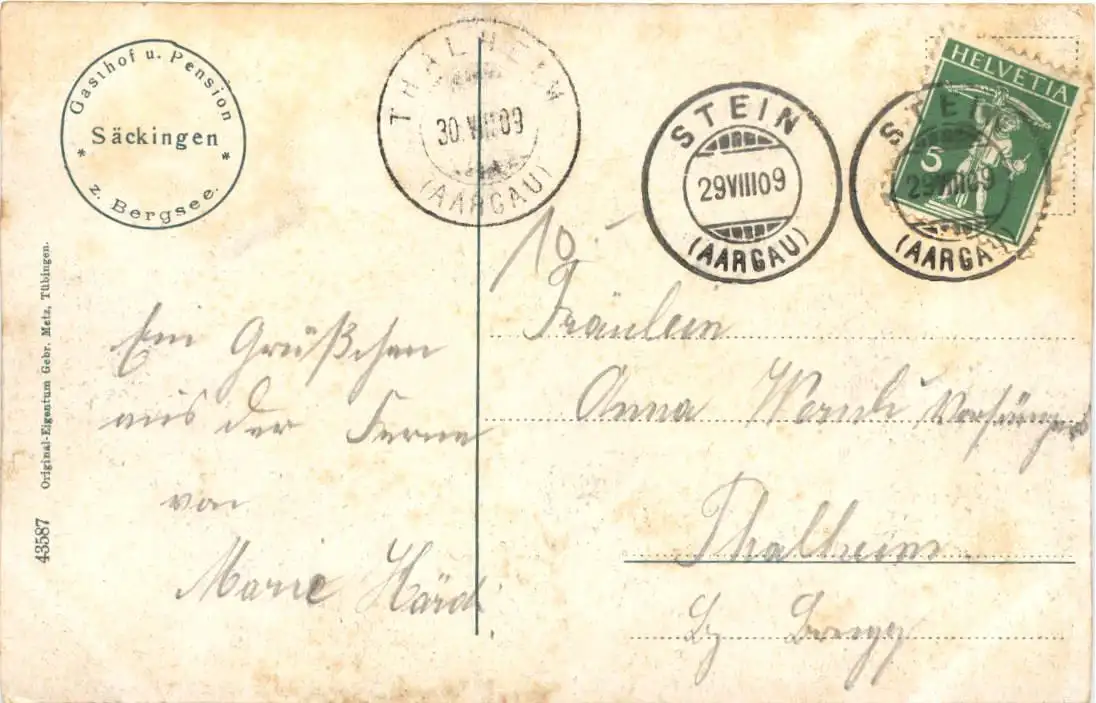 Gasthof u. Pension
* Säckingen *
z. Bergsee.
THALHEIM
30.VIII.09
(AARGAU)
STEIN
29VIII09
(AARGAU)
HELVETIA
5
STEIN
29VIII09
(AARGAU)
10.
Original-Eigentum Gebr. Metz, Tübingen.
43587
Ein Grüßchen
aus der Ferne
von
Marie Härdi
Fräulein
Anna Wernli
Thalheim.
Bz Brugg